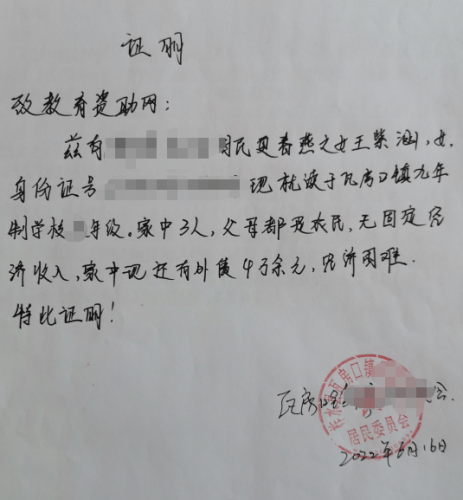 证明
致教育资助网：
兹有 居民吏春燕之女王紫涵，女，
身份证号 现就读于瓦房口镇九年
制学校 年级。家中3人，父母都是农民，无固定经
济收入，家中现还有外债4万余元，经济困难。
特此证明！
瓦房口 会
瓦房口镇
居民委员会
2022年6月16日